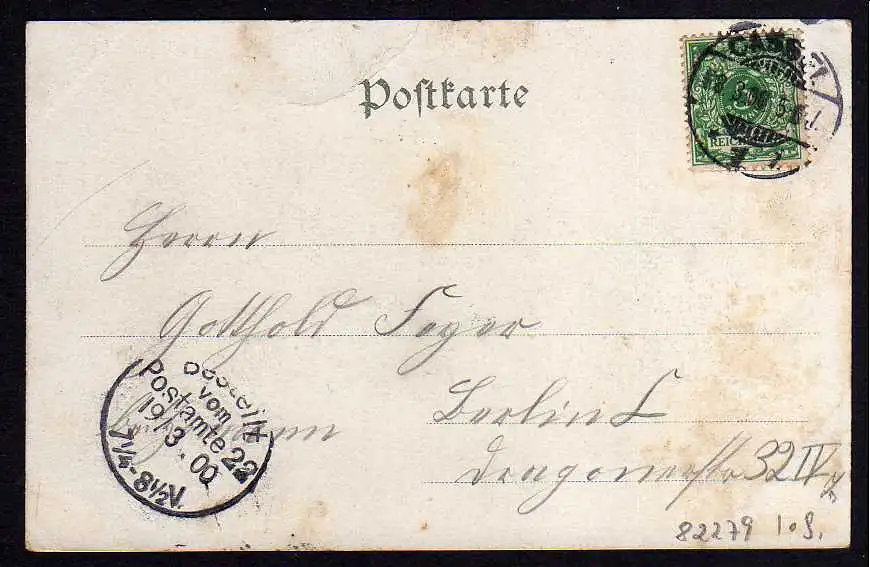 Postkarte
CASSEL
REICHSPOST
Herrn
Gotthold Feyer
Berlin C
Dragonerstr 32 IV
Bestellt
vom
Postamte 22
19/3.00
7¼-8½V.
82279 10.